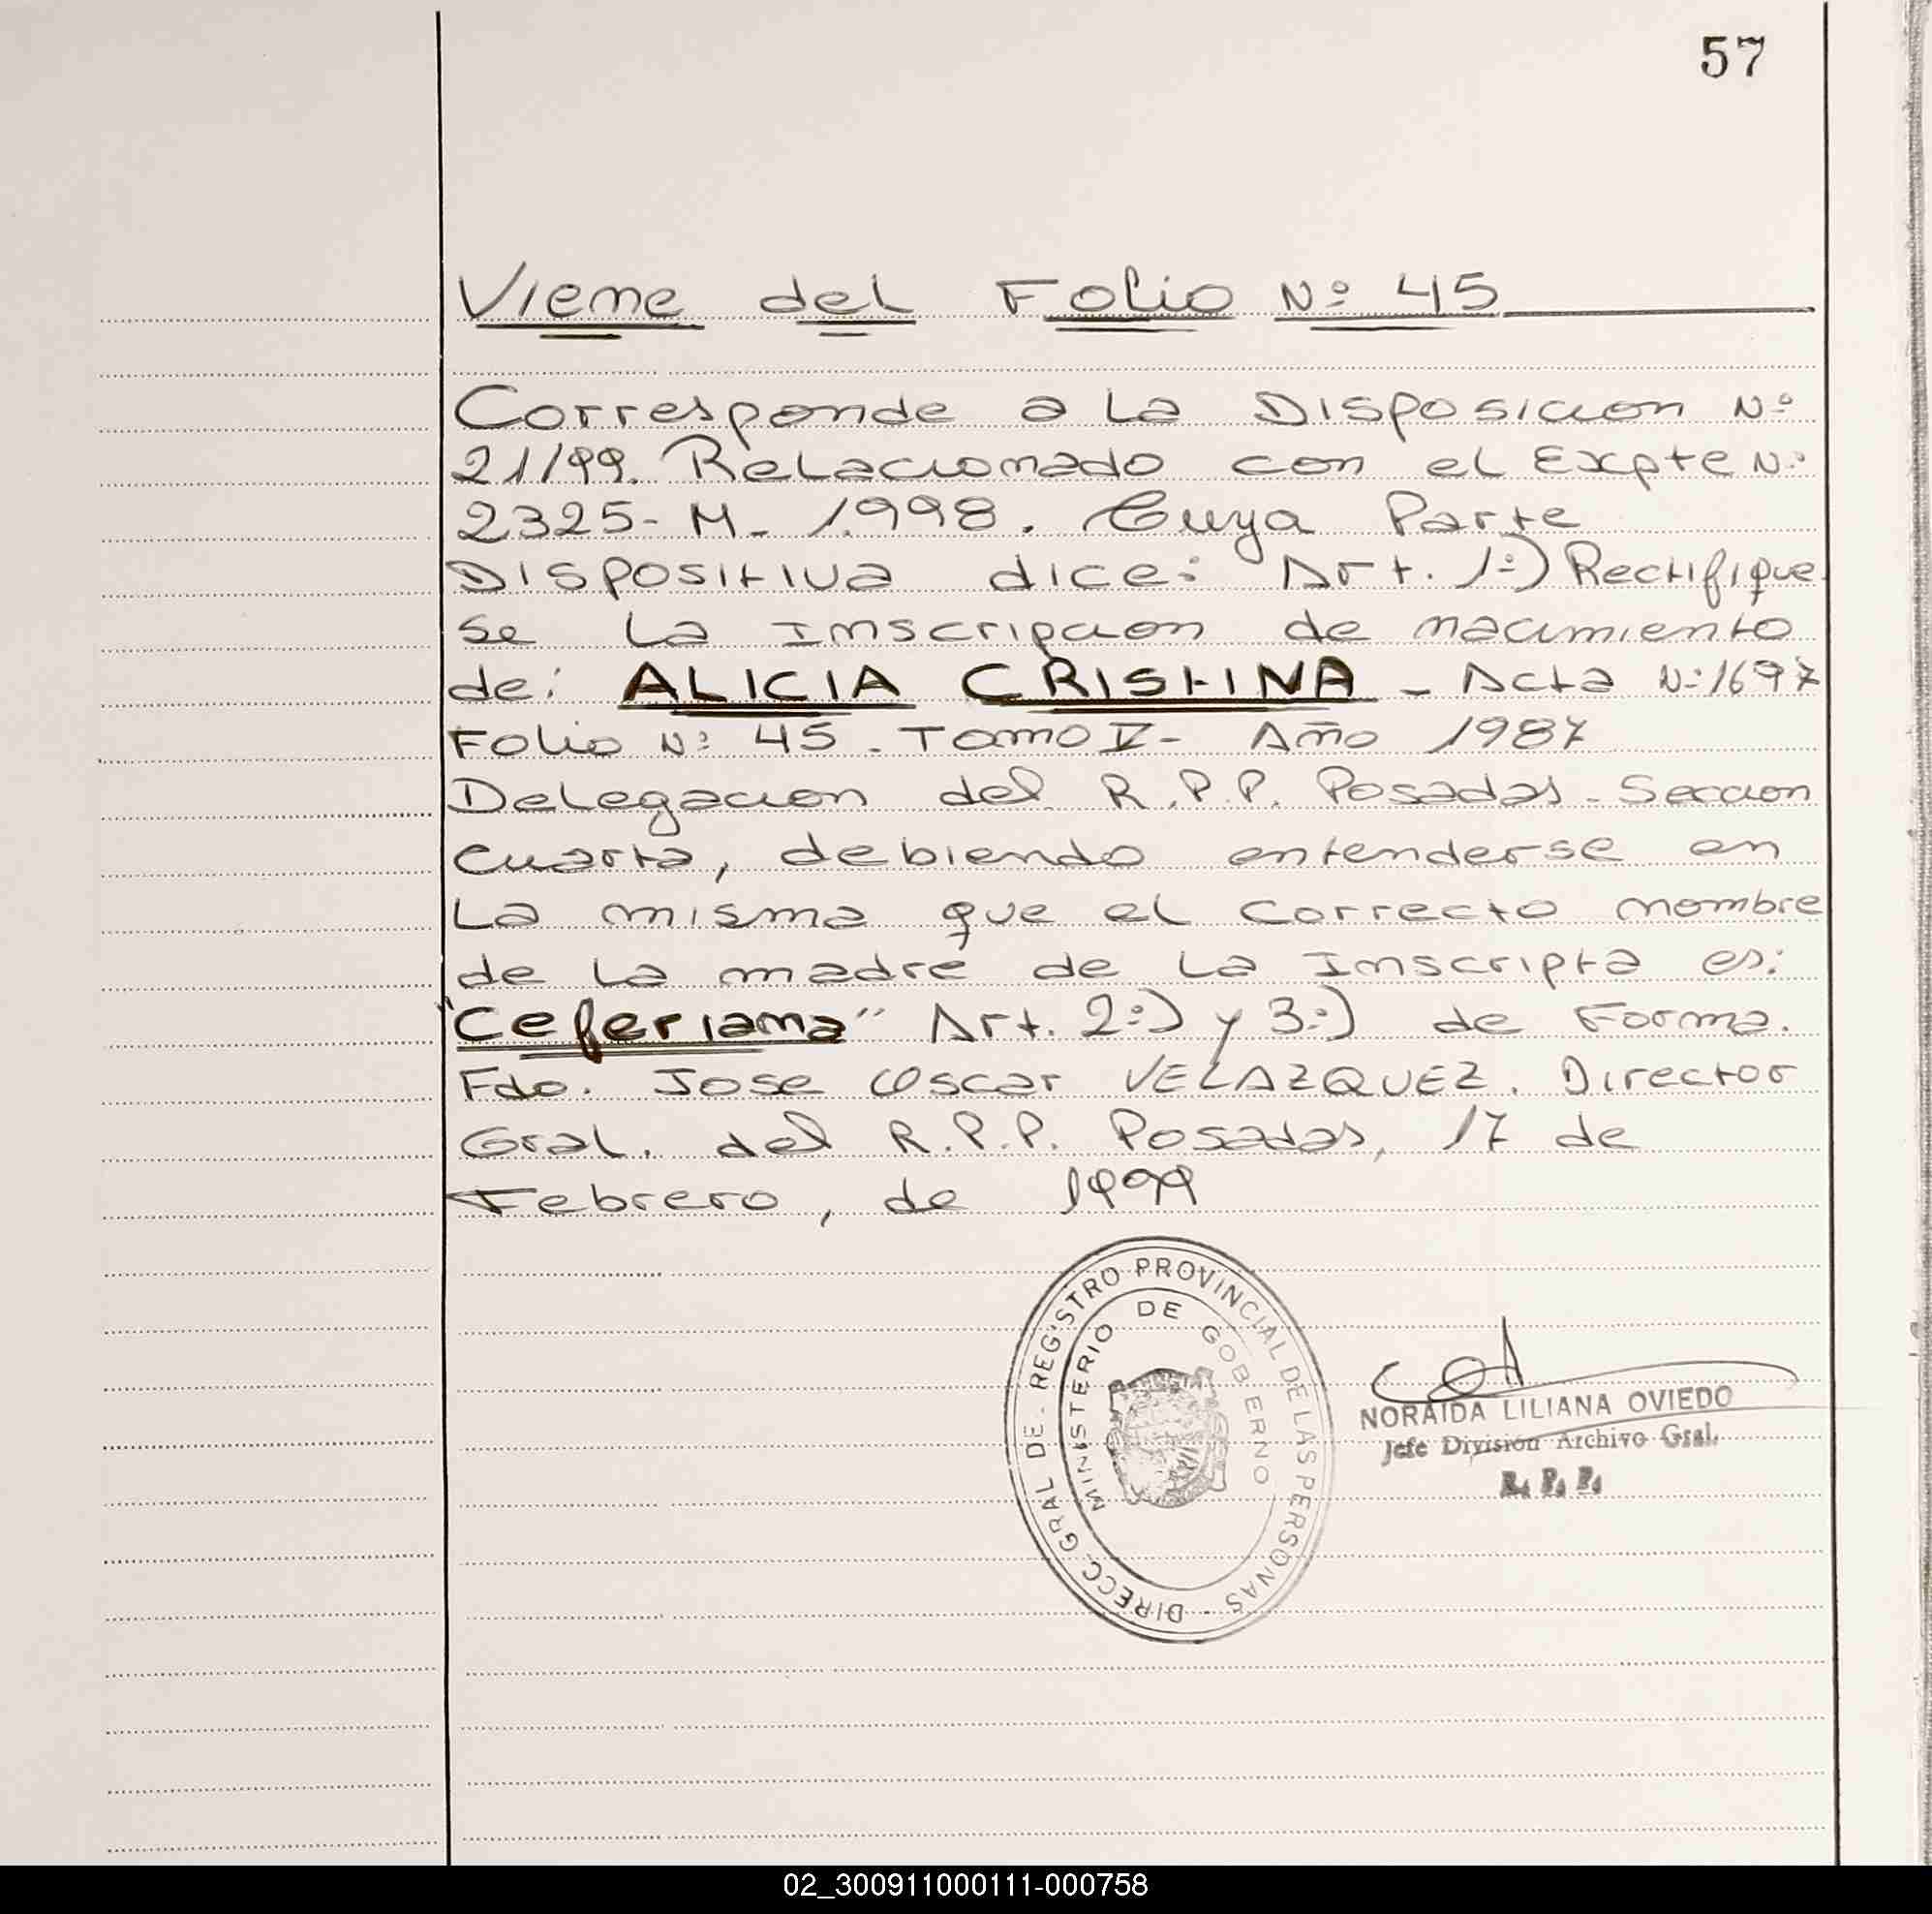 57
Viene del Folio Nº 45
Corresponde a la Disposicion Nº
21/99. Relacionado con el Expte Nº
2325- M- 1.998. Cuya Parte
Dispositiva dice: Art. 1º) Rectifique
se la Inscripcion de nacimiento
de: ALICIA CRISTINA - Acta Nº 1697
Folio Nº 45. Tomo V- Año 1987
Delegacion del R.P.P. Posadas. Seccion
Cuarta, debiendo entenderse en
La misma que el correcto nombre
de la madre de la Inscripta es:
"Ceferiana" Art. 2º) y 3º) de Forma.
Fdo. Jose Oscar VELAZQUEZ. Director
Gral. del R.P.P. Posadas, 17 de
Febrero, de 1999
DIRECC. GRAL DE. REGISTRO PROVINCIAL DE LAS PERSONAS -
MINISTERIO DE GOBIERNO
NORAIDA LILIANA OVIEDO
Jefe División Archivo Gral.
R. P. P.
02_300911000111-000758